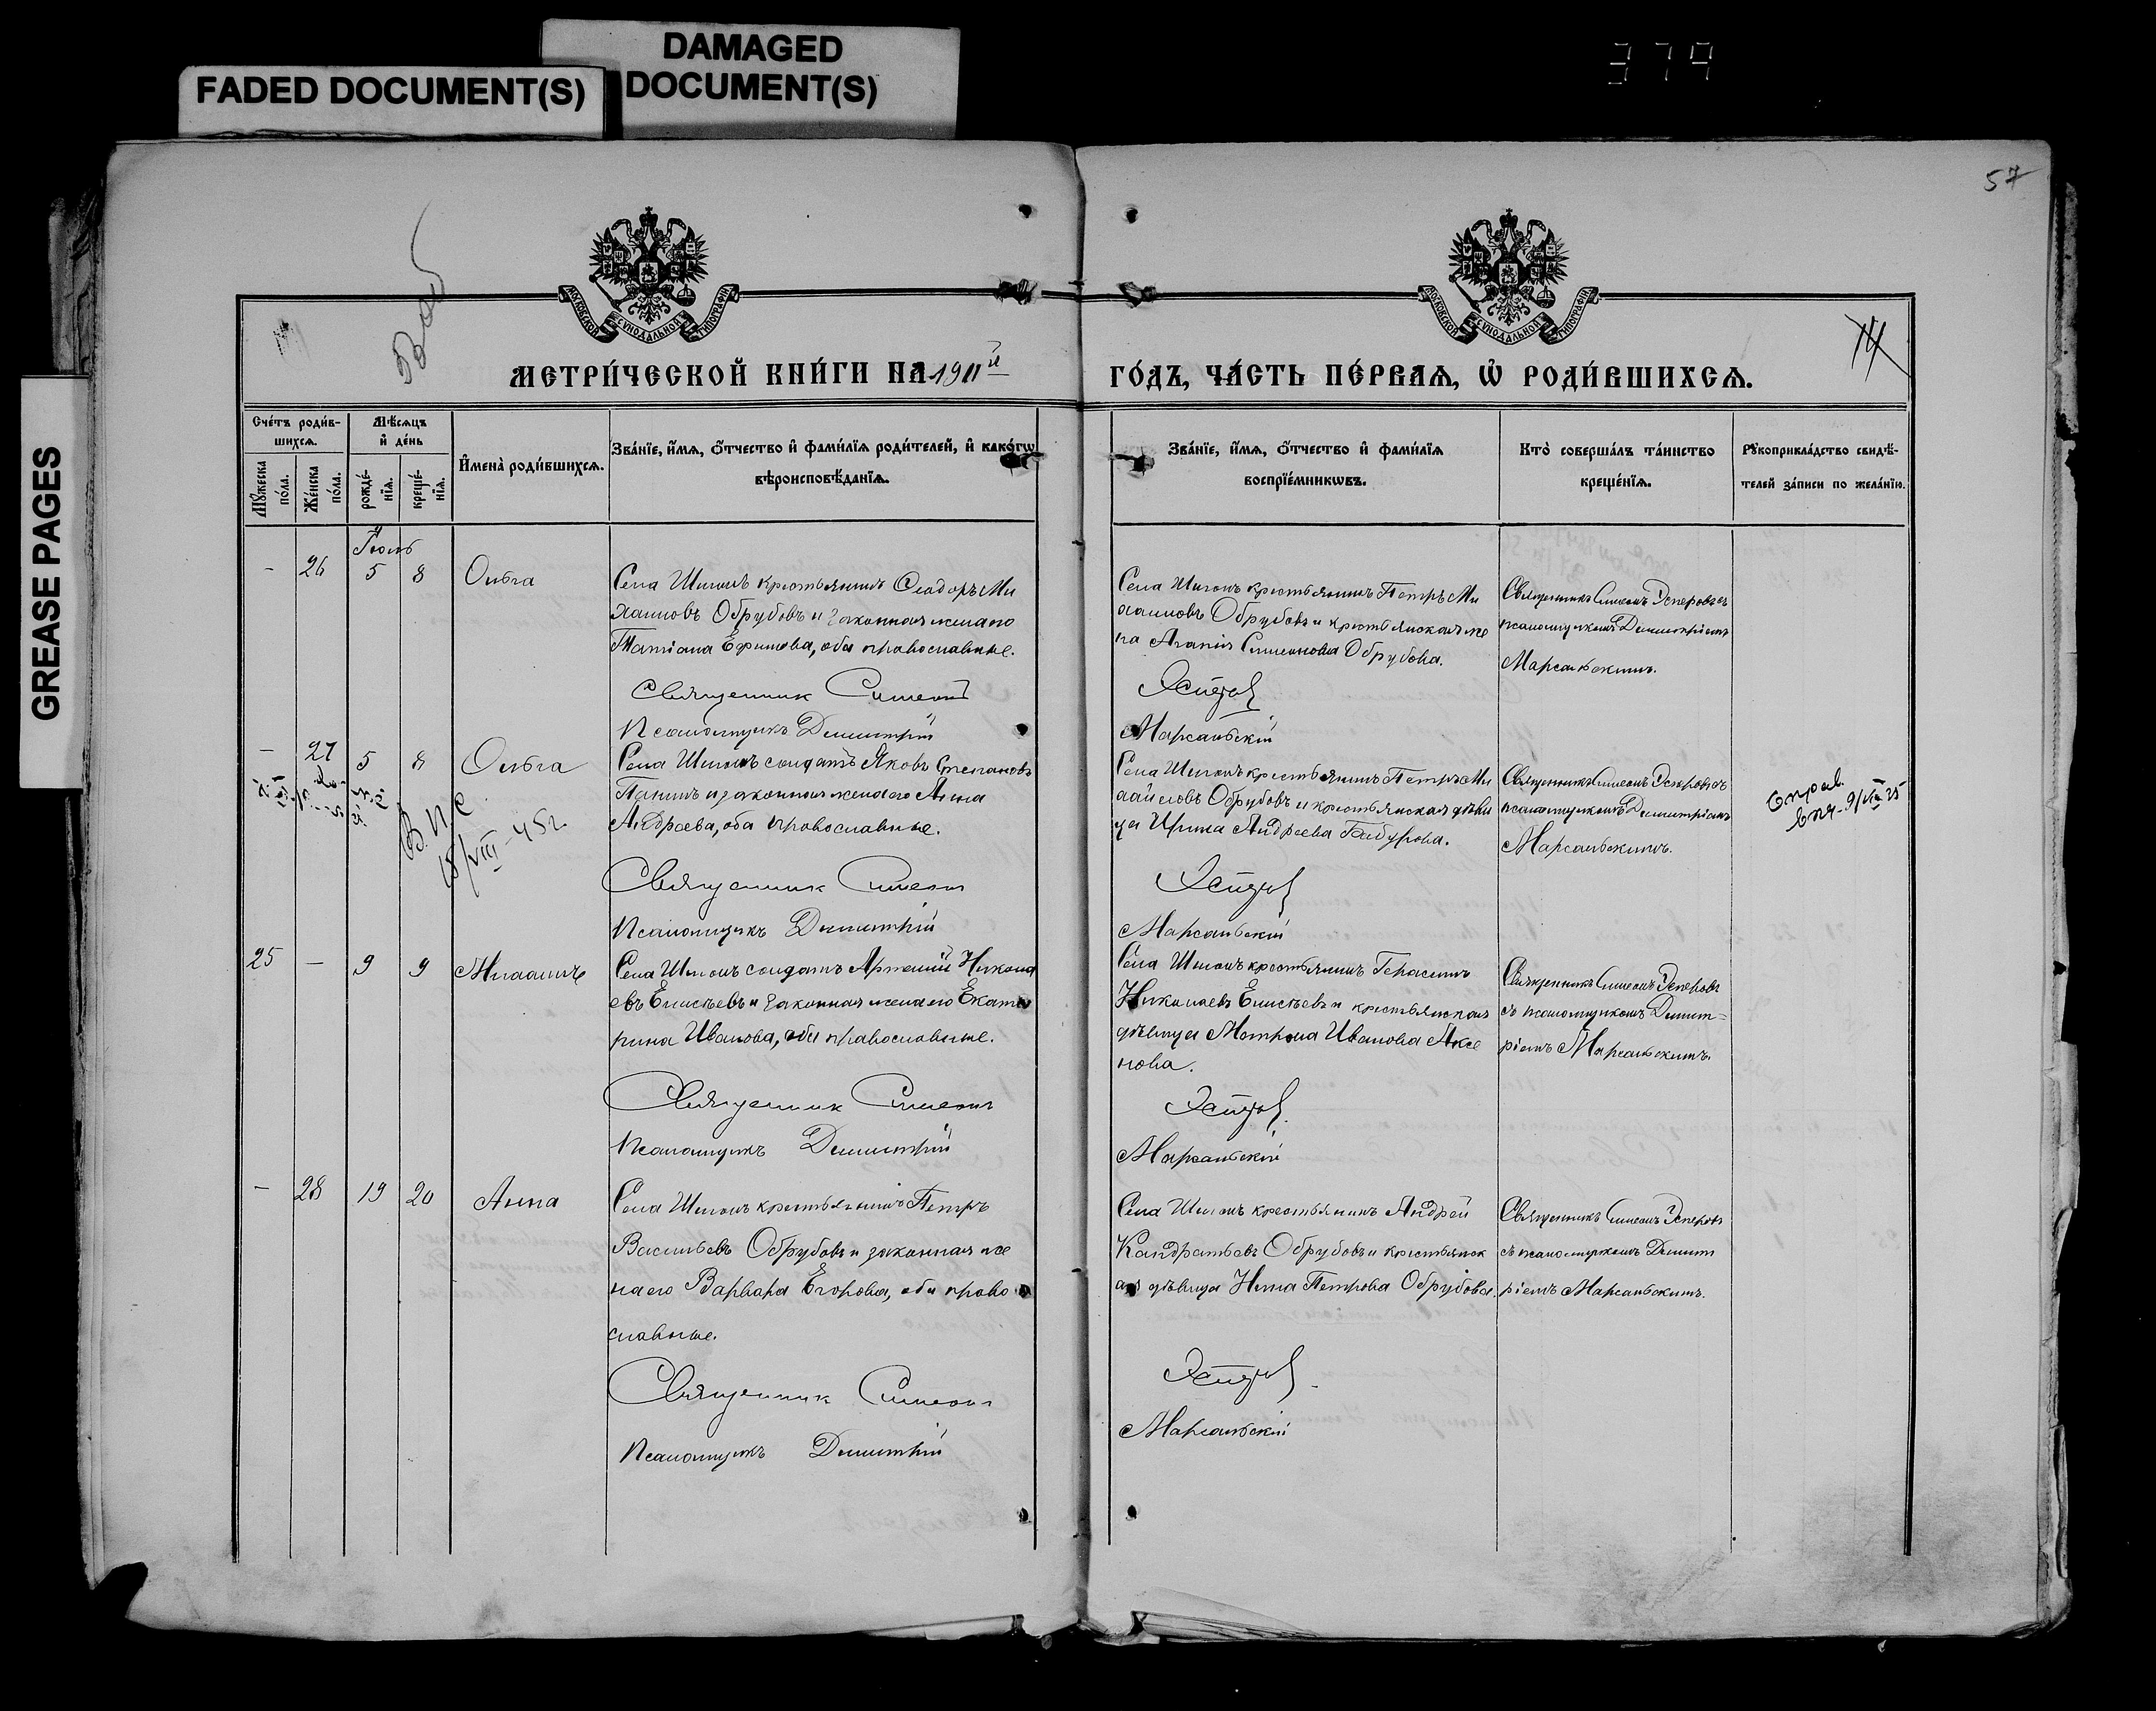 DAMAGED
DOCUMENT(S)
FADED DOCUMENT(S)
GREASE PAGES
379
57
МОСКОВСКОЙ СѴНОДАЛЬНОЙ ТИПОГРАФІИ
МОСКОВСКОЙ СѴНОДАЛЬНОЙ ТИПОГРАФІИ
МЕТРИ́ЧЕСКОЙ КНИ́ГИ НА 1911й
ГО́ДЪ, ЧА́СТЬ ПЕ́РВАЯ, Ѡ РОДИ́ВШИХСЯ.
Сче́тъ роди́в-
шихся.
Мꙋ́жеска
по́ла.
Же́нска
по́ла.
Мѣ́сяцъ
и҆ де́нь
рожде́-
нїя.
креще́-
нїя.
И҆мена̀ роди́вшихся.
Зва́нїе, и҆́мя, ѻ҆́тчество и҆ фами́лїя роди́телей, и҆ како́гѡ
вѣроисповѣ́данїя.
Зва́нїе, и҆́мя, ѻ҆́тчество и҆ фами́лїя
воспрїе́мникѡвъ.
Кто̀ соверша́лъ та́инство
креще́нїя.
Рꙋкоприкла́дство свидѣ́-
телей за́писи по жела́нїю.
Іюль
- 26 5 8 Ольга
Села Шигонъ крестьянинъ Ѳеодоръ Ми
хаиловъ Обрубовъ и законная жена его
Татіана Ефимова, оба православные.
Священникъ Симеонъ
Псаломщикъ Димитрій
Села Шигонъ крестьянинъ Петръ Ми
хаиловъ Обрубовъ и крестьянская же
на Агапія Симеонова Обрубова.
Эсперовъ
Марсальскій
Священникъ Симеонъ Эсперовъ съ
псаломщикомъ Димитріемъ
Марсальскимъ.
- 27 5 8 Ольга
В.П.С.
15/VIII-45г.
Села Шигонъ солдатъ Яковъ Степановъ
Панинъ и законная жена его Анна
Андреева, оба православные.
Священникъ Симеонъ
Псаломщикъ Димитрій
Села Шигонъ крестьянинъ Петръ Ми
хаиловъ Обрубовъ и крестьянская дѣви
ца Ирина Андреева Бабурова.
Эсперовъ
Марсальскій
Священникъ Симеонъ Эсперовъ съ
псаломщикомъ Димитріемъ
Марсальскимъ.
Справ.
25 - 9 9
Села Шигонъ солдатъ Артемій Никола
евъ Елисѣевъ и законная жена его Екате
рина Иванова, оба православные.
Священникъ Симеонъ
Псаломщикъ Димитрій
Села Шигонъ крестьянинъ Герасимъ
Николаевъ Елисѣевъ и крестьянская
дѣвица Матрона Иванова Аксе
нова.
Эсперовъ.
Марсальскій
Священникъ Симеонъ Эсперовъ
съ псаломщикомъ Димит=
ріемъ Марсальскимъ.
- 28 19 20 Анна
Села Шигонъ крестьянинъ Петръ
Васильевъ Обрубовъ и законная же
на его Варвара Егорова, оба право
славные.
Священникъ Симеонъ
Псаломщикъ Димитрій
Села Шигонъ крестьянинъ Андрей
Кандратьевъ Обрубовъ и крестьянск
ая дѣвица Нина Петрова Обрубова.
Эсперовъ
Марсальскій
Священникъ Симеонъ Эсперовъ
съ псаломщикомъ Димит
ріемъ Марсальскимъ.